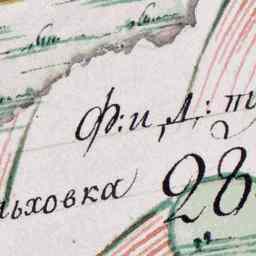 Ф: и, Д: т
льховка 28